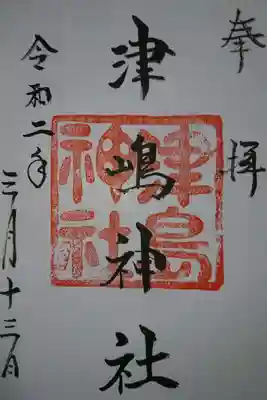 奉拝
津嶋神社
津島神社
令和二年
三月十三日